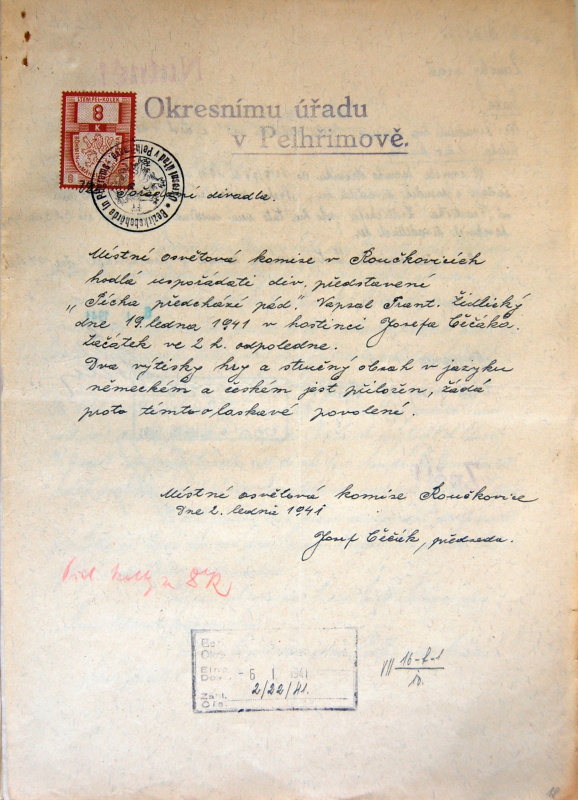 STEMPEL-KOLEK
8
K
Okresnímu úřadu
v Pelhřimově.
divadla.
Místní osvětová komise v Roučkovicích
hodlá uspořádati div. představení
"Pýcha předchází pád". Napsal Frant. Židlický
dne 19. ledna 1941 v hostinci Josefa Čěčáka.
Začátek ve 2 h. odpoledne.
Dva výtisky hry a stručný obsah v jazyku
německém a českém jest přiložen, žádá
proto tímto o laskavé povolení.
Místní osvětová komise Roučkovice
Dne 2. ledna 1941
Josef Čěčák, předseda.
- 6 I 1941
2/22/41.
VII 16-f-1